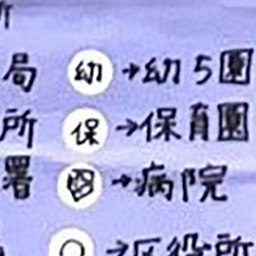 所
局 幼→幼ち園
所 保→保育園
署 →病院
→区役所